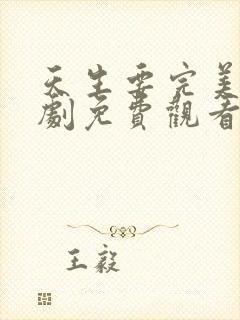 天生要完美
劇免費觀看
王毅